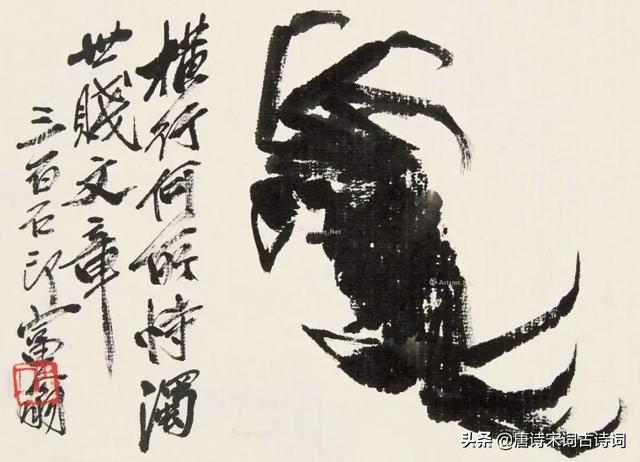 橫行何所恃濁
世賤文章
三百石印富翁
Artron.Net
头条 @唐诗宋词古诗词